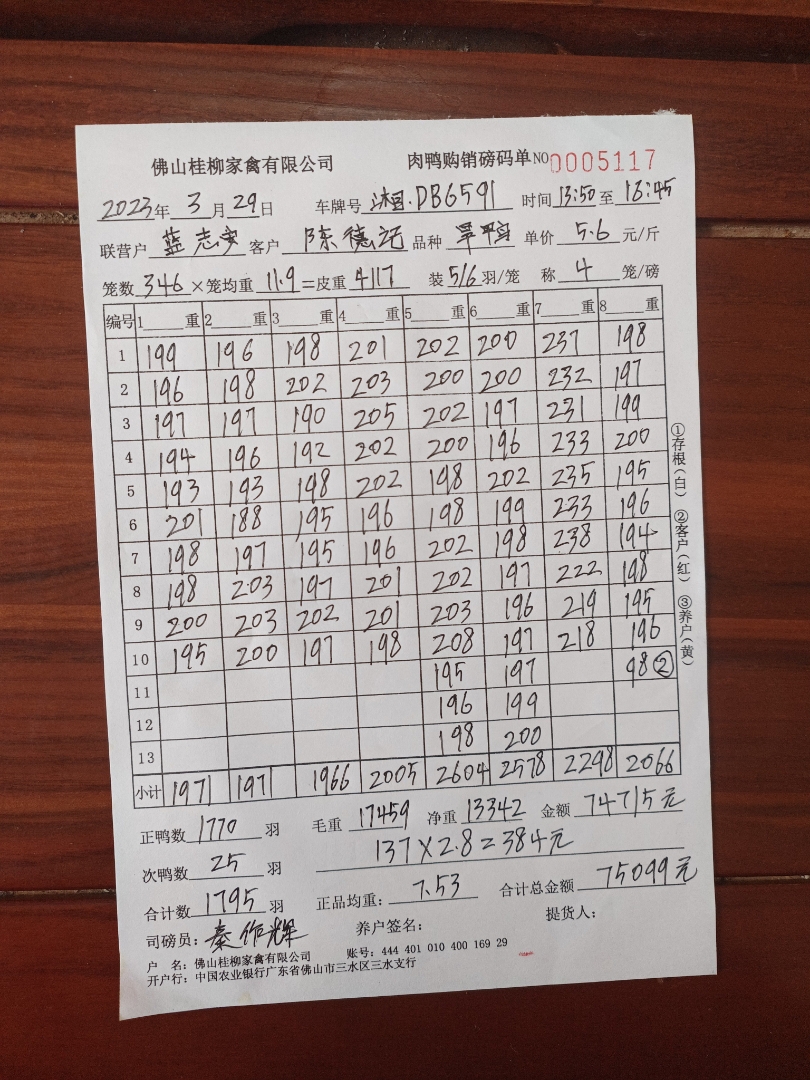 佛山桂柳家禽有限公司 肉鸭购销磅码单 NO 0005117
2023年 3月29日 车牌号 湘·DB6591 时间 13:50 至 16:45
联营户 蓝志安 客户 陈德记 品种 旱鸭 单价 5.6 元/斤
笼数 346 ×笼均重 11.9 =皮重 4117 装 5/6 羽/笼 称 4 笼/磅
编号 1 重 2 重 3 重 4 重 5 重 6 重 7 重 8 重
1 199 196 198 201 202 200 237 198
2 196 198 202 203 200 200 232 197
3 197 197 190 205 202 197 231 199
4 194 196 192 202 200 196 233 200
5 193 193 198 202 198 202 235 195
6 201 188 195 196 198 199 233 196
7 198 197 195 196 202 198 238 194
8 198 203 197 201 202 197 222 198
9 200 203 202 201 203 196 219 195
10 195 200 197 198 208 197 218 196
11 195 197 98②
12 196 199
13 198 200
小计 1971 1971 1966 2005 2604 2578 2298 2066
①存根(白) ②客户(红) ③养户(黄)
正鸭数 1770 羽 毛重 17459 净重 13342 金额 74715元
次鸭数 25 羽 137×2.8=384元
合计数 1795 羽 正品均重: 7.53 合计总金额 75099元
司磅员: 秦作辉 养户签名: 提货人:
户 名: 佛山桂柳家禽有限公司 账号: 444 401 010 400 169 29
开户行: 中国农业银行广东省佛山市三水区三水支行